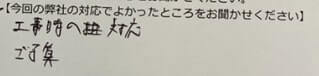 【今回の弊社の対応でよかったところをお聞かせください】
工事時の 対応
ご予算